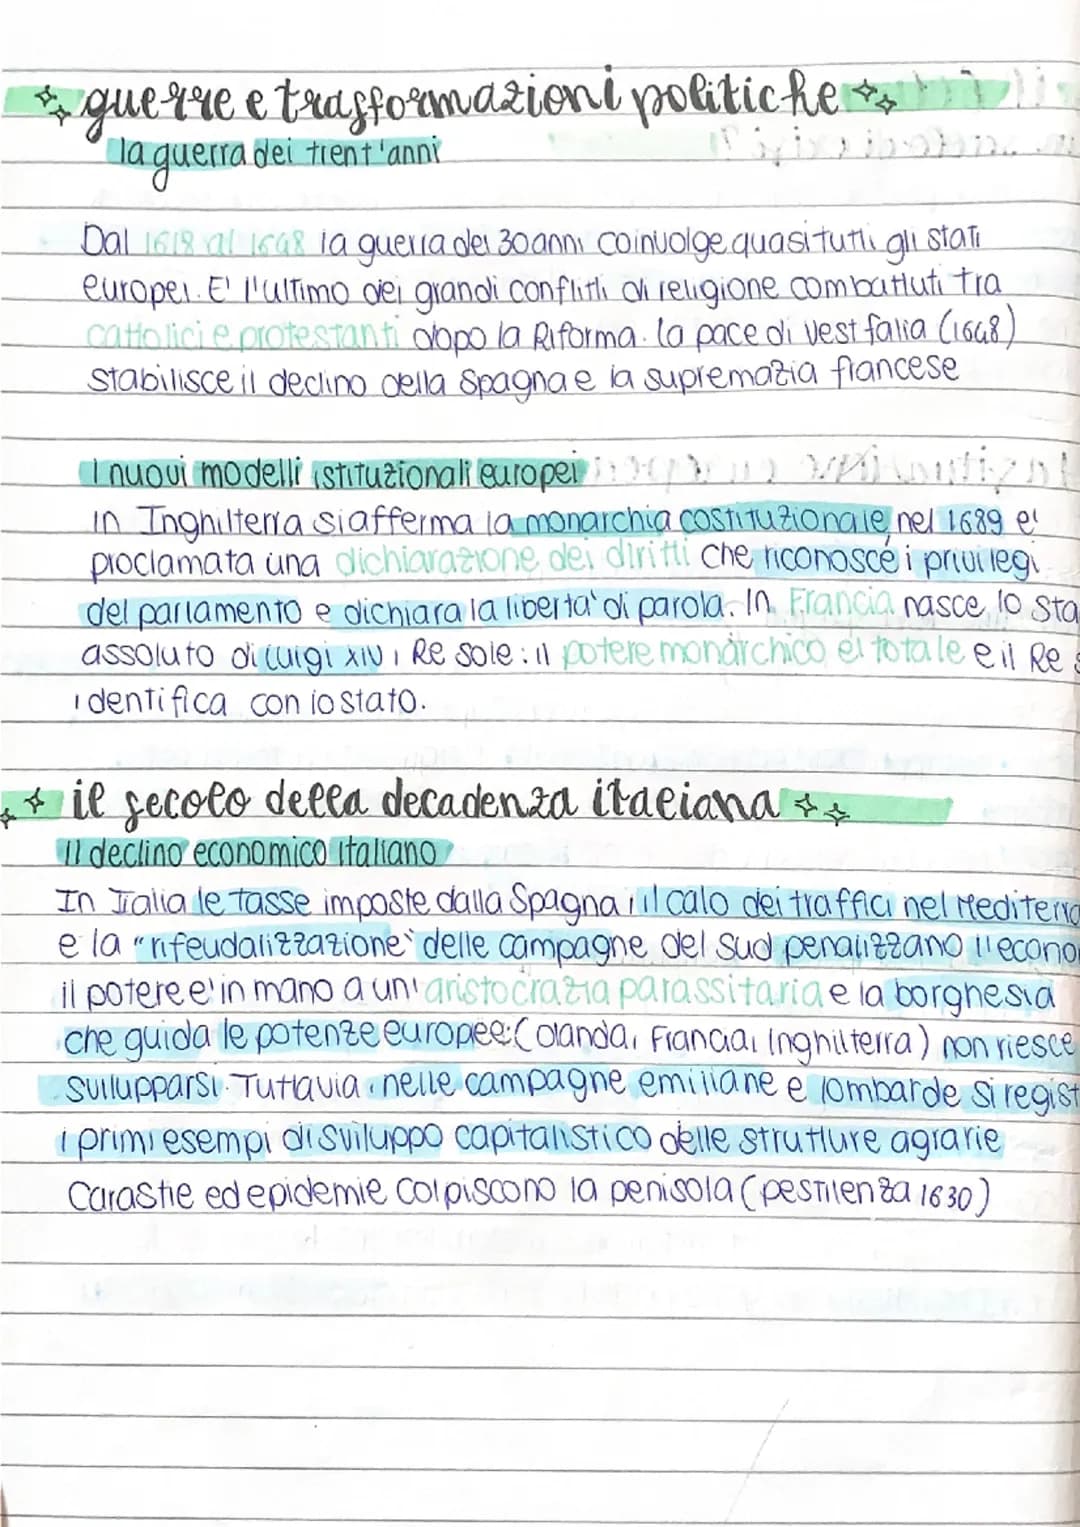 guerre e trasformazioni politiche
la guerra dei trent'anni
Dal 1618 al 1648 la guerra dei 30 anni coinvolge quasi tutti gli stati
europei. E' l'ultimo dei grandi conflitti di religione combattuti tra
cattolici e protestanti dopo la Riforma. la pace di Vestfalia (1648)
stabilisce il declino della Spagna e la supremazia francese
I nuovi modelli istituzionali europei
in Inghilterra si afferma la monarchia costituzionale, nel 1689 e'
proclamata una dichiarazione dei diritti che riconosce i privilegi
del parlamento e dichiara la liberta' di parola. In Francia nasce lo sta
assoluto di Luigi XIV, Re Sole: il potere monarchico e' totale e il Re s
identifica con lo stato.
il secolo della decadenza italiana
Il declino economico italiano
In Italia le tasse imposte dalla Spagna, il calo dei traffici nel Mediterra
e la "rifeudalizzazione" delle campagne del Sud penalizzano l'econo
il potere e' in mano a un' aristocrazia parassitaria e la borghesia
che guida le potenze europee: (Olanda, Francia, Inghilterra) non riesce
svilupparsi. Tuttavia, nelle campagne emiliane e lombarde si regist
i primi esempi di sviluppo capitalistico delle strutture agrarie
Carastie ed epidemie colpiscono la penisola (pestilenza 1630)